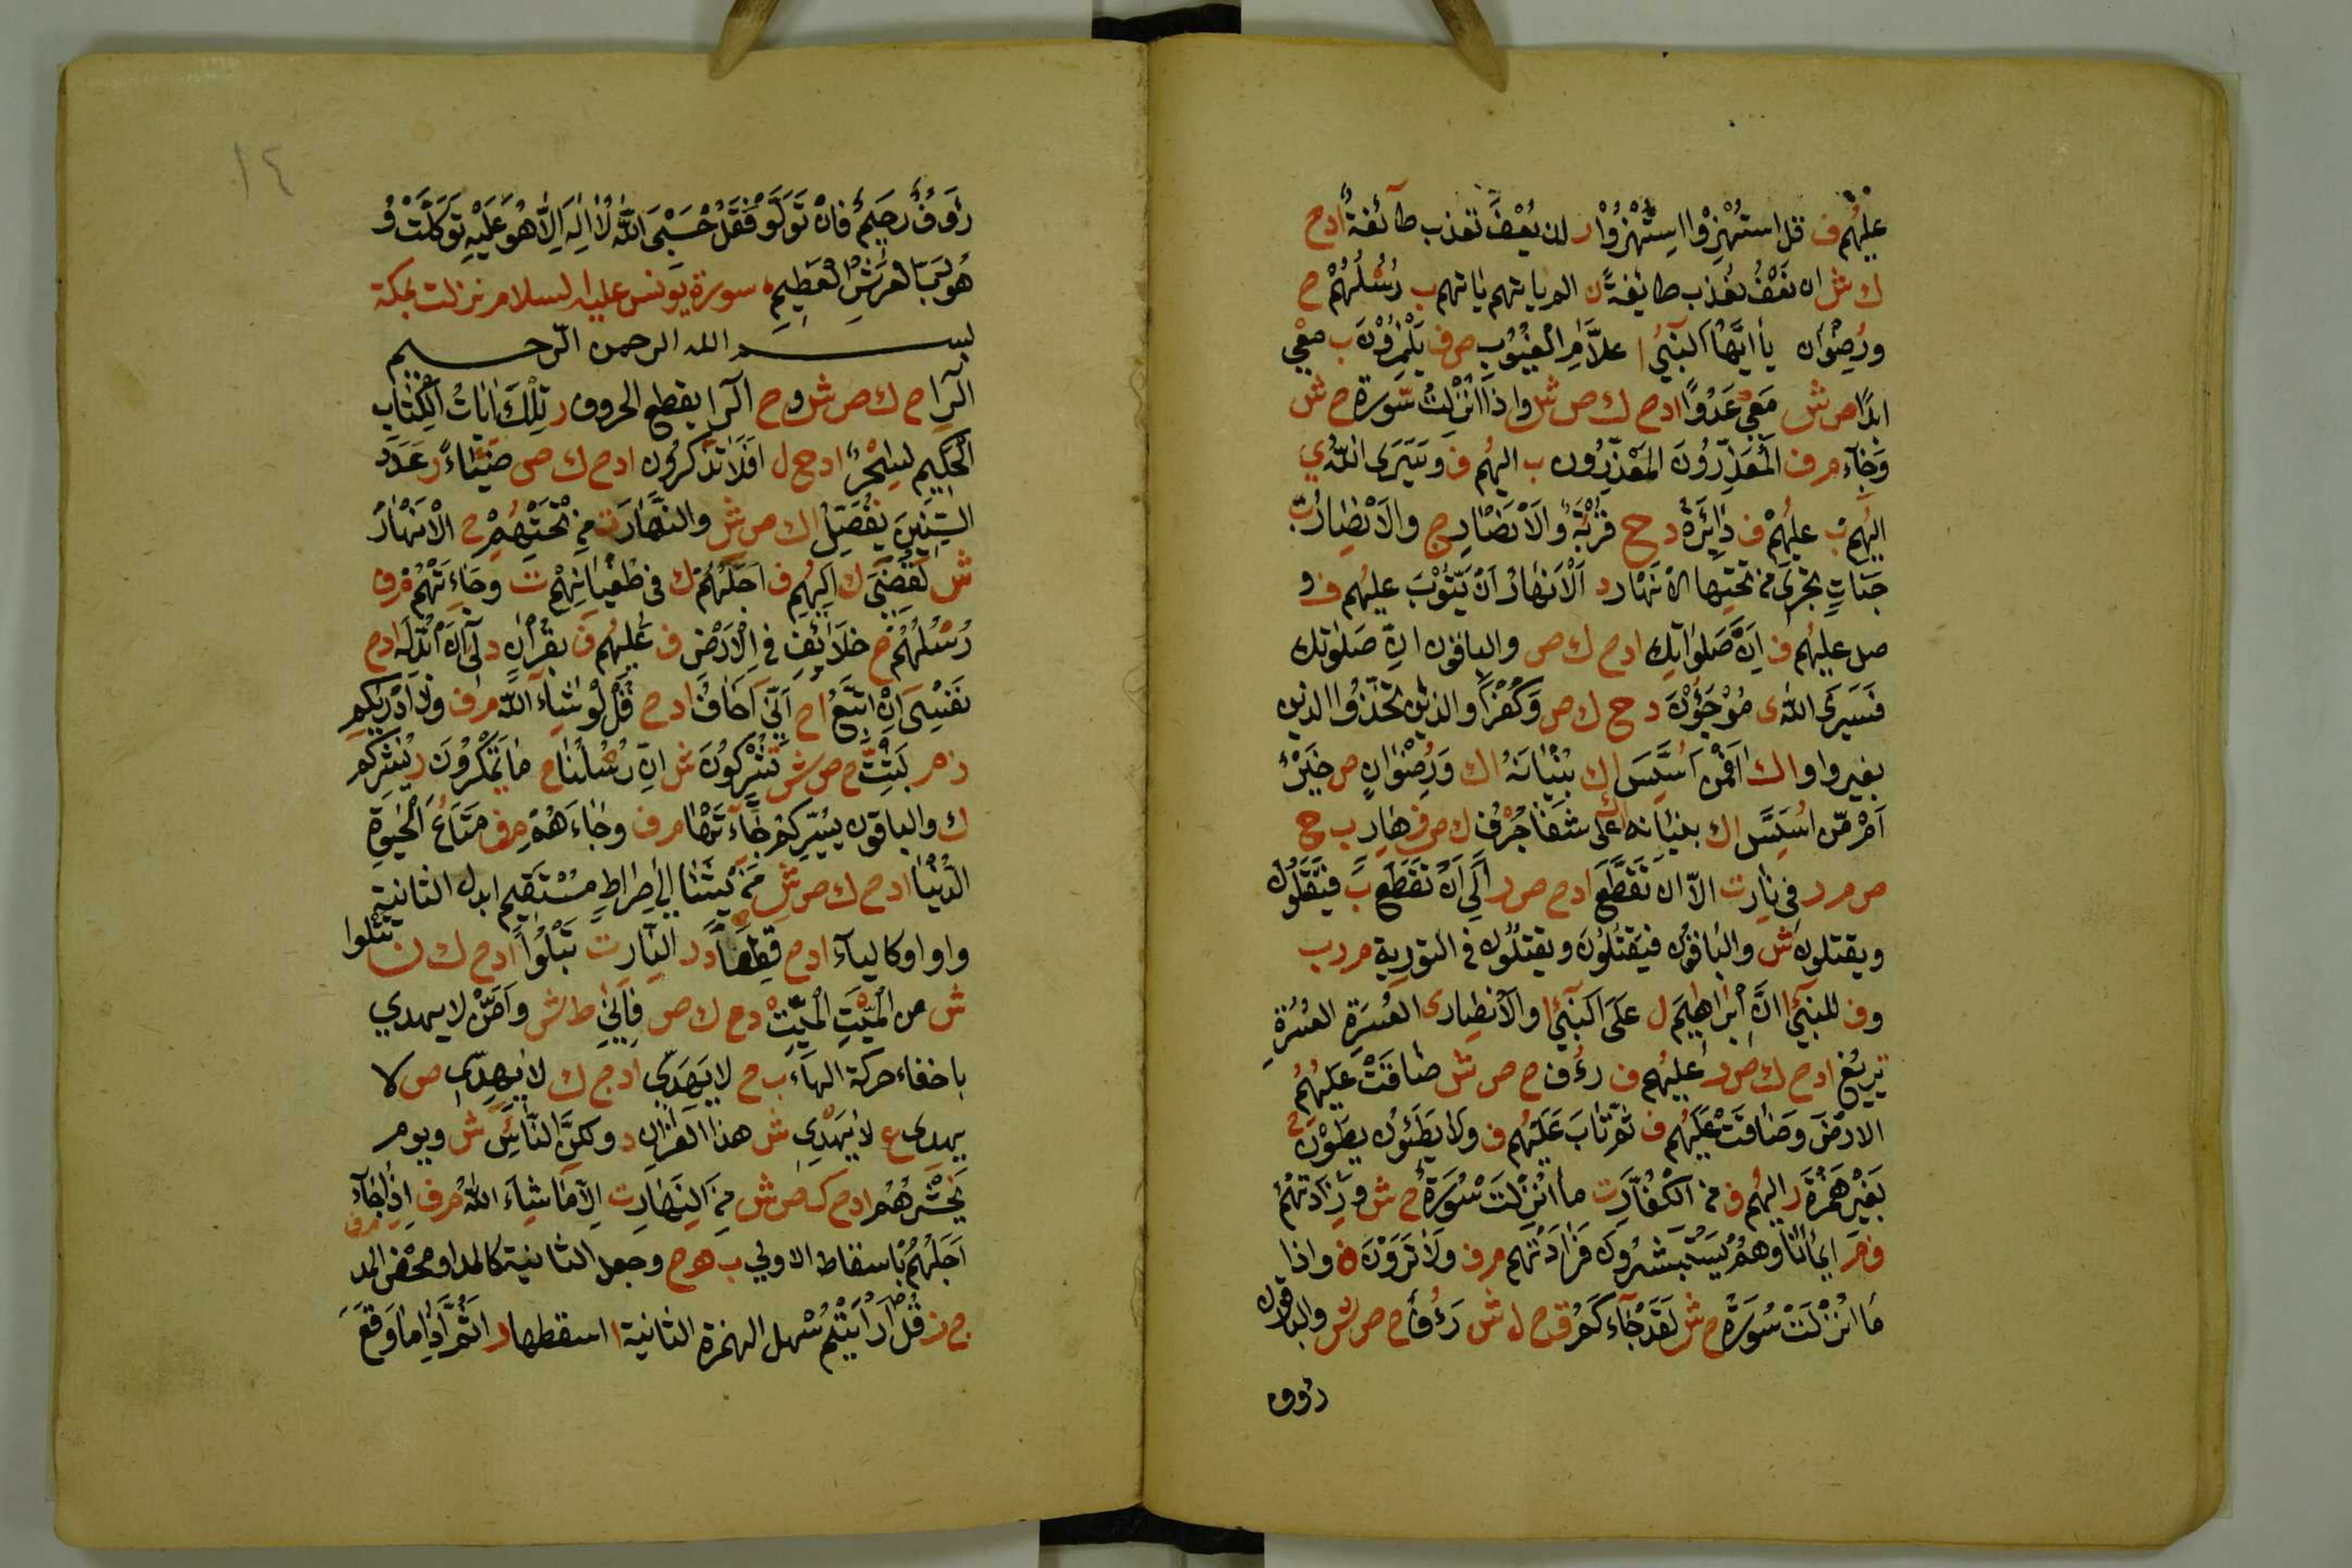 عليهُم ف قل استهزؤا استهزؤا ر ان يُعْفَ تعذب طائفةٌ ادح
ك ش ان نَعْفُ نُعذب طائفةً ن الم ياتهم ياتهم ب رُسْلُهُمْ ح
ورُضوان يا ايّها النبيُ ا علّام الغيوب ص ف يَلْمُزُوْنَ ب معي
ابدًا ص ش معي عَدُوًا ادح ك ص ش واذا انزلت سّورة ح ش
وَجَآء م ف المُعَذِّرُونَ المعْذِرُون ب اليهُم ف وسَيَرى اللّه ي
اليهُم ب عليهُمْ ف دَائِرَةُ د ح ج قُرُبَةٌ والانصار ج والانصارُ ب
جناتٍ تجرى من تحتها الانهار د الانهار ان يّتوبَ عليهُم ف و
صل عليهُم ف انّ صَلواتِك ادح ك ص والباقون انّ صَلوتك
فسَيرى اللّه ى مُرْجَؤُنَ د ح ك ص وكُفرًا والذين اتخذوا الذين
بغير واو ا ك افمن اُسِّسَ ا ك بُنْيَانُهُ ا ك ورُضوانٍ ص خيرٌ
اَمْ مّن اُسِّسَ ا ك بنيانه على شفا جُرْفٍ ك ص ف هَارٍ ب ح
ص م ر في نار ت الّا ان تُقَطَّعَ ادح ص ر الى ان تَقَطَّعَ ب فيَقتلون
ويقتلون ش والباقون فيَقتُلُونَ ويقتلُون في التورية م ر ب
وف للنبيّ ا انّ ابراهيم ل على النبيّ ا والانصار ى العُسْرَةِ العُسُرَةِ
تزيغ ادح ك ص ر عليهُم ف رءُف ح ص ش ضاقَتْ عليهُمُ
الارض وضاقت عليهُم ف ثم تابَ عليهُم ف ولا يَطَئُون يطَوْنَ
بغير هَمْزة ر اليهُم ف من الكُفّار ت ما انزلت سُورةٌ ح ش وزادتهُم
ف م ر ايمانًا وهُمْ يَسْتبشرُون فزادَتهم م ف ولا تَروْنَ ف واذا
مَا انزلَتْ سُورَةٌ ح ش لقَد جَآءَكُمْ ق ح ل ش رَءُف ح ص ش والباقون
رؤوف
١٤
رَؤفٌ رحيمٌ فانْ تَولَّوْ فَقلْ حَسْبِىَ اللّهُ لا اِلهَ اِلّا هُوَ عَلَيْهِ تَوكّلْتْ وَ
هُو رَبّ العَرشِ العَظِيمِ سورة يونس عليه السلام نزلت بمكة
بسم الله الرحمن الرّحيم
الٓرا ح ك ص ش و ح الرا يقطع الحروف ر تِلْكَ ايَاتُ الْكِتَابِ
الْحَكِيمِ لسِحْرٌ ادح ح ل افلا تذّكرون ادح ك ص ضئاءً ر عَدَدَ
السّنينَ نفصّل ا ك ص ش والنهار ت من تحتهُم ح الانهَارُ
ش لقَضَى ك اليهُم ف اَجَلَهُمْ ك في طغيانهِم ت وجَاءتْهُمْ م ف
رُسْلُهُمْ ح خلائف في الارض ف عَليهُم ف بقُرانٍ د لى انَ ابدّله ادح
نَفْسِىَ ان اتبعُ ا ح انّيَ اخافُ ادح قل لو شآءَ الله م ف ولا ادريكم
ز م ر لبثتَّ ح ص ش تشركونَ ش انّ رُسْلنا ح ما تمكُرُونَ ر ينشركم
ك والباقون يسيّركم جآءَتها م ف وجَاءَهُم م ف متاعُ الحيوةِ
الدّنيا ادح ك ص ش مَن يَشَاءُ الى صِراطٍ مستقيم ابدل الثانية
واوا وكالياء ادح قِطعًا د ر النّار ت تَبْلُوا ادح ك ن تتلوا
ش من الميّتِ الميْتَ دح ك ص فانّى ط ش وامّن لا يهدي
باخفاء حركة الهاء ب ح لا يَهَدّي ادح ك لا يِهِدّي ص لا
يهدى ع لا يَهْدِى ش هذا القرانِ د ولكنّ النّاسُ ش ويوم
نَحْشُرُهُم ادح ك ص ش من النهار ت الّا ما شاءَ اللهُ م ف اِذا جآءَ م ف
اجَلُهُم باسقاط الاولى ب ه ح وجعل الثانية كالمد او محض المد
ج ز قُل ارَايتُم سُهل الهمزة الثانية ا اسقطها ر اثُمَّ اذا ما وَقَعَ